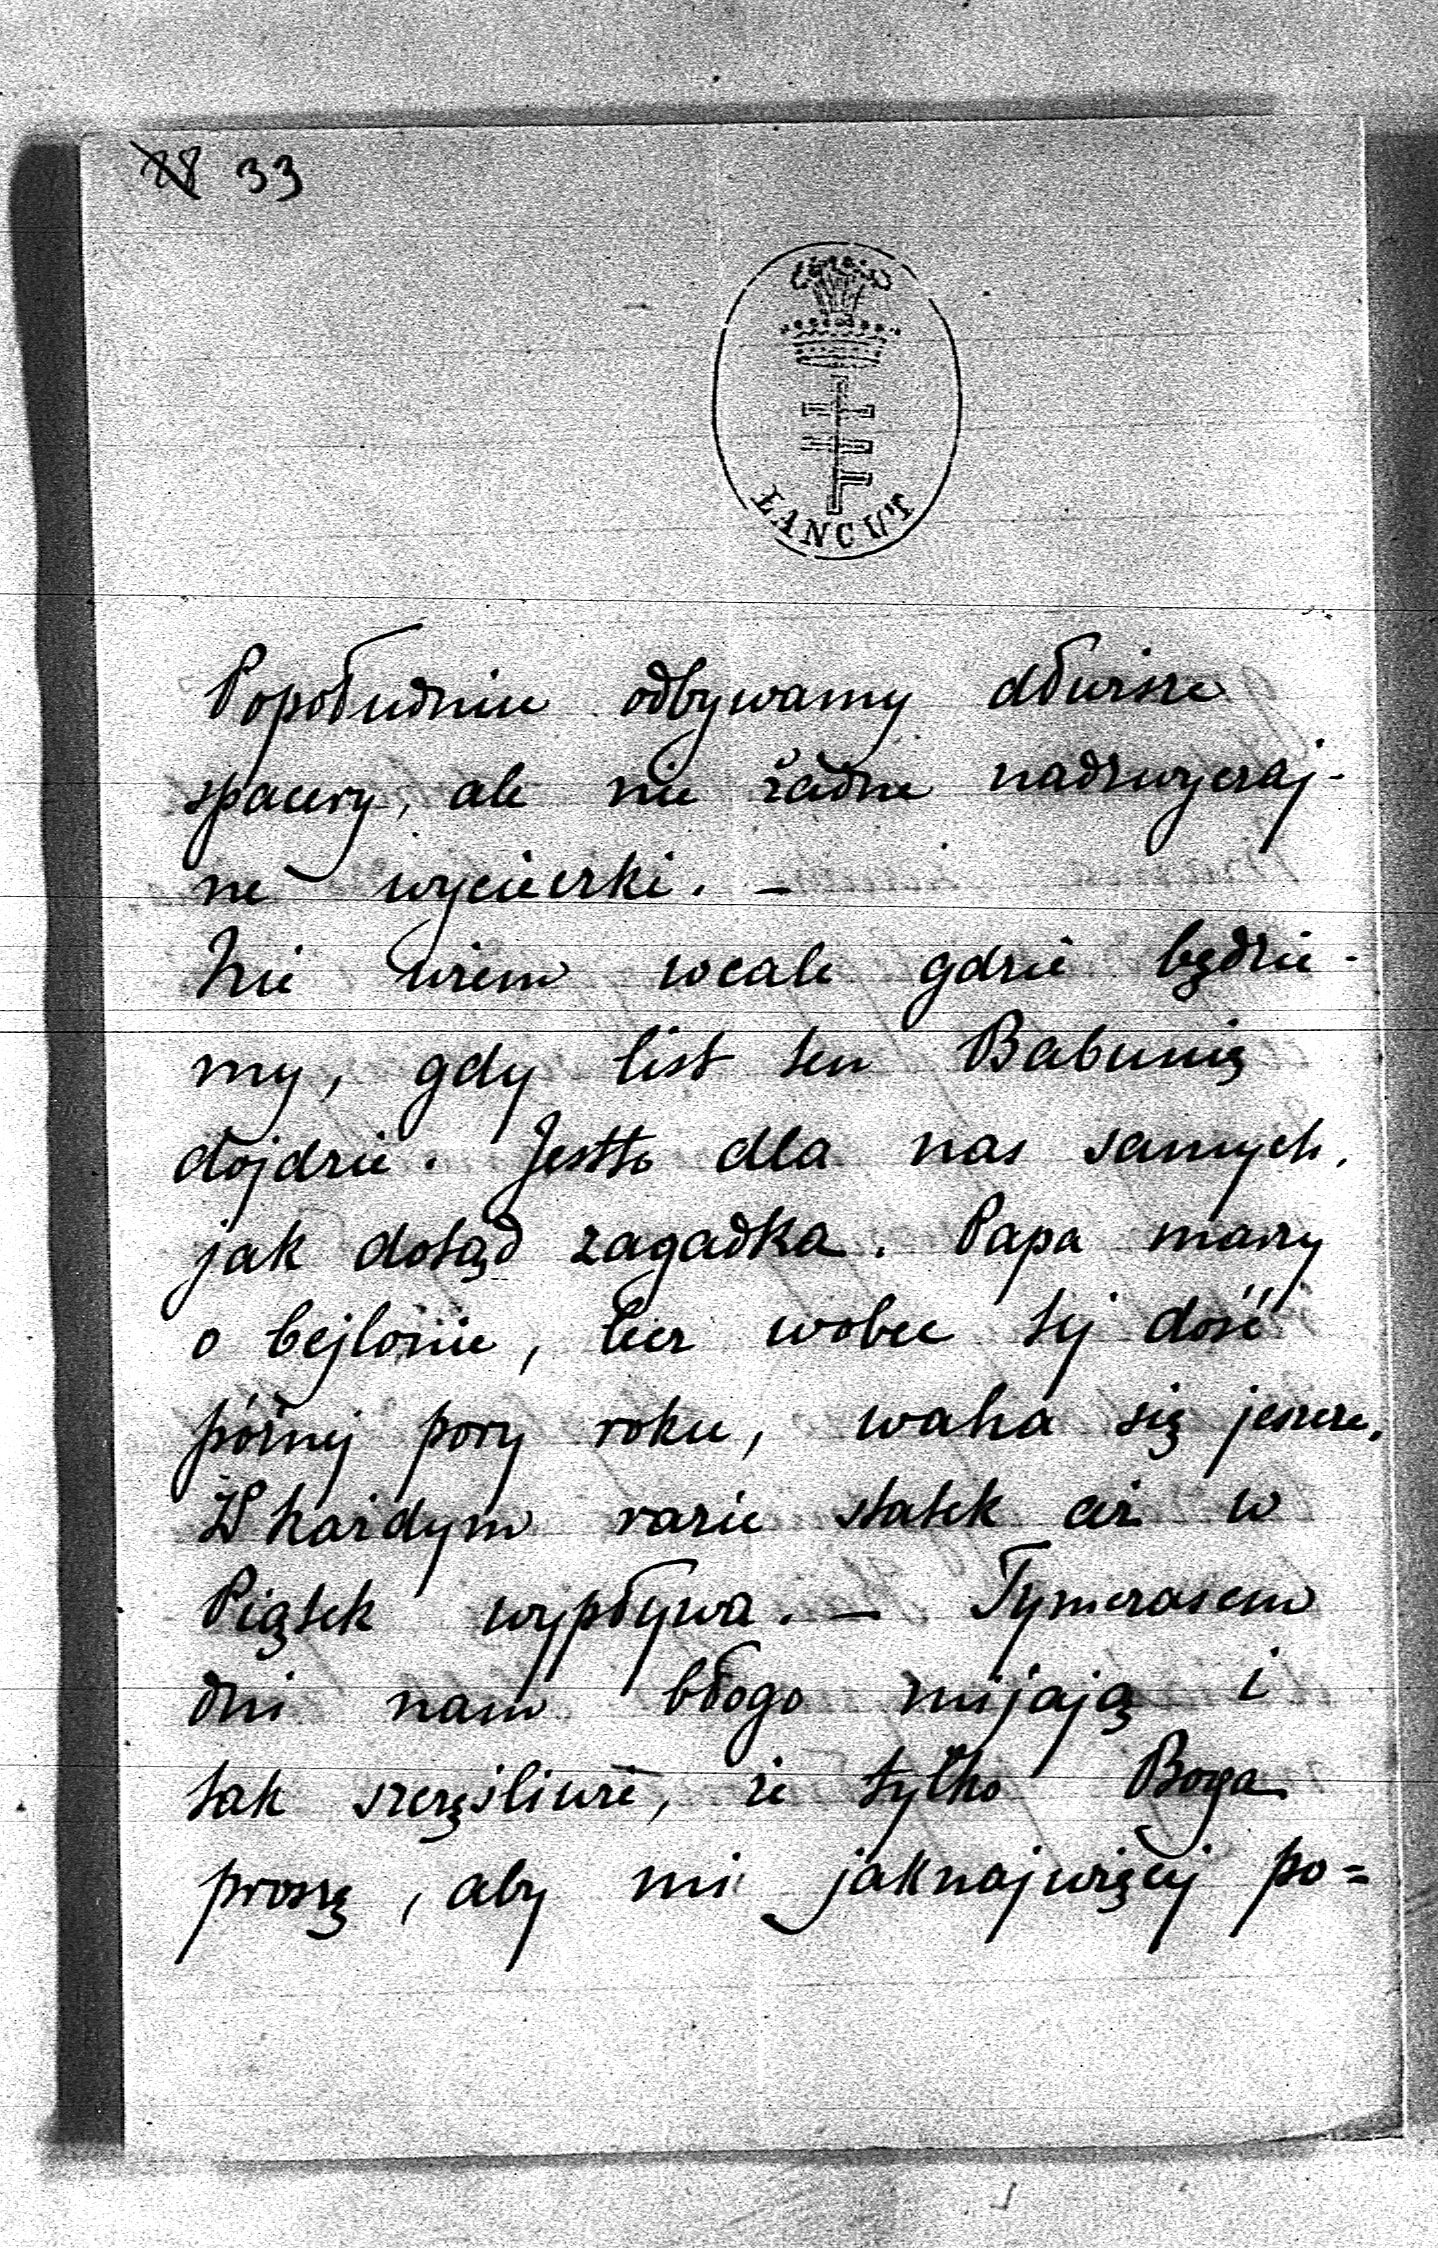 33
ŁANCUT
Popołudniu odbywamy dłuższe
spacery, ale nie żadne nadzwyczaj-
ne wycieczki. –
Nie wiem wcale gdzie będzie-
my, gdy list ten Babunię
dojdzie. Jestto dla nas samych,
jak dotąd zagadka. Papa marzy
o Cejlonie, lecz wobec tej dość
późnej pory roku, waha się jeszcze.
W każdym razie statek aż w
Piątek wypływa. – Tymczasem
dni nam błogo mijają i
tak szczęśliwie, że tylko Boga
proszę, aby mi jaknajwięcej po=